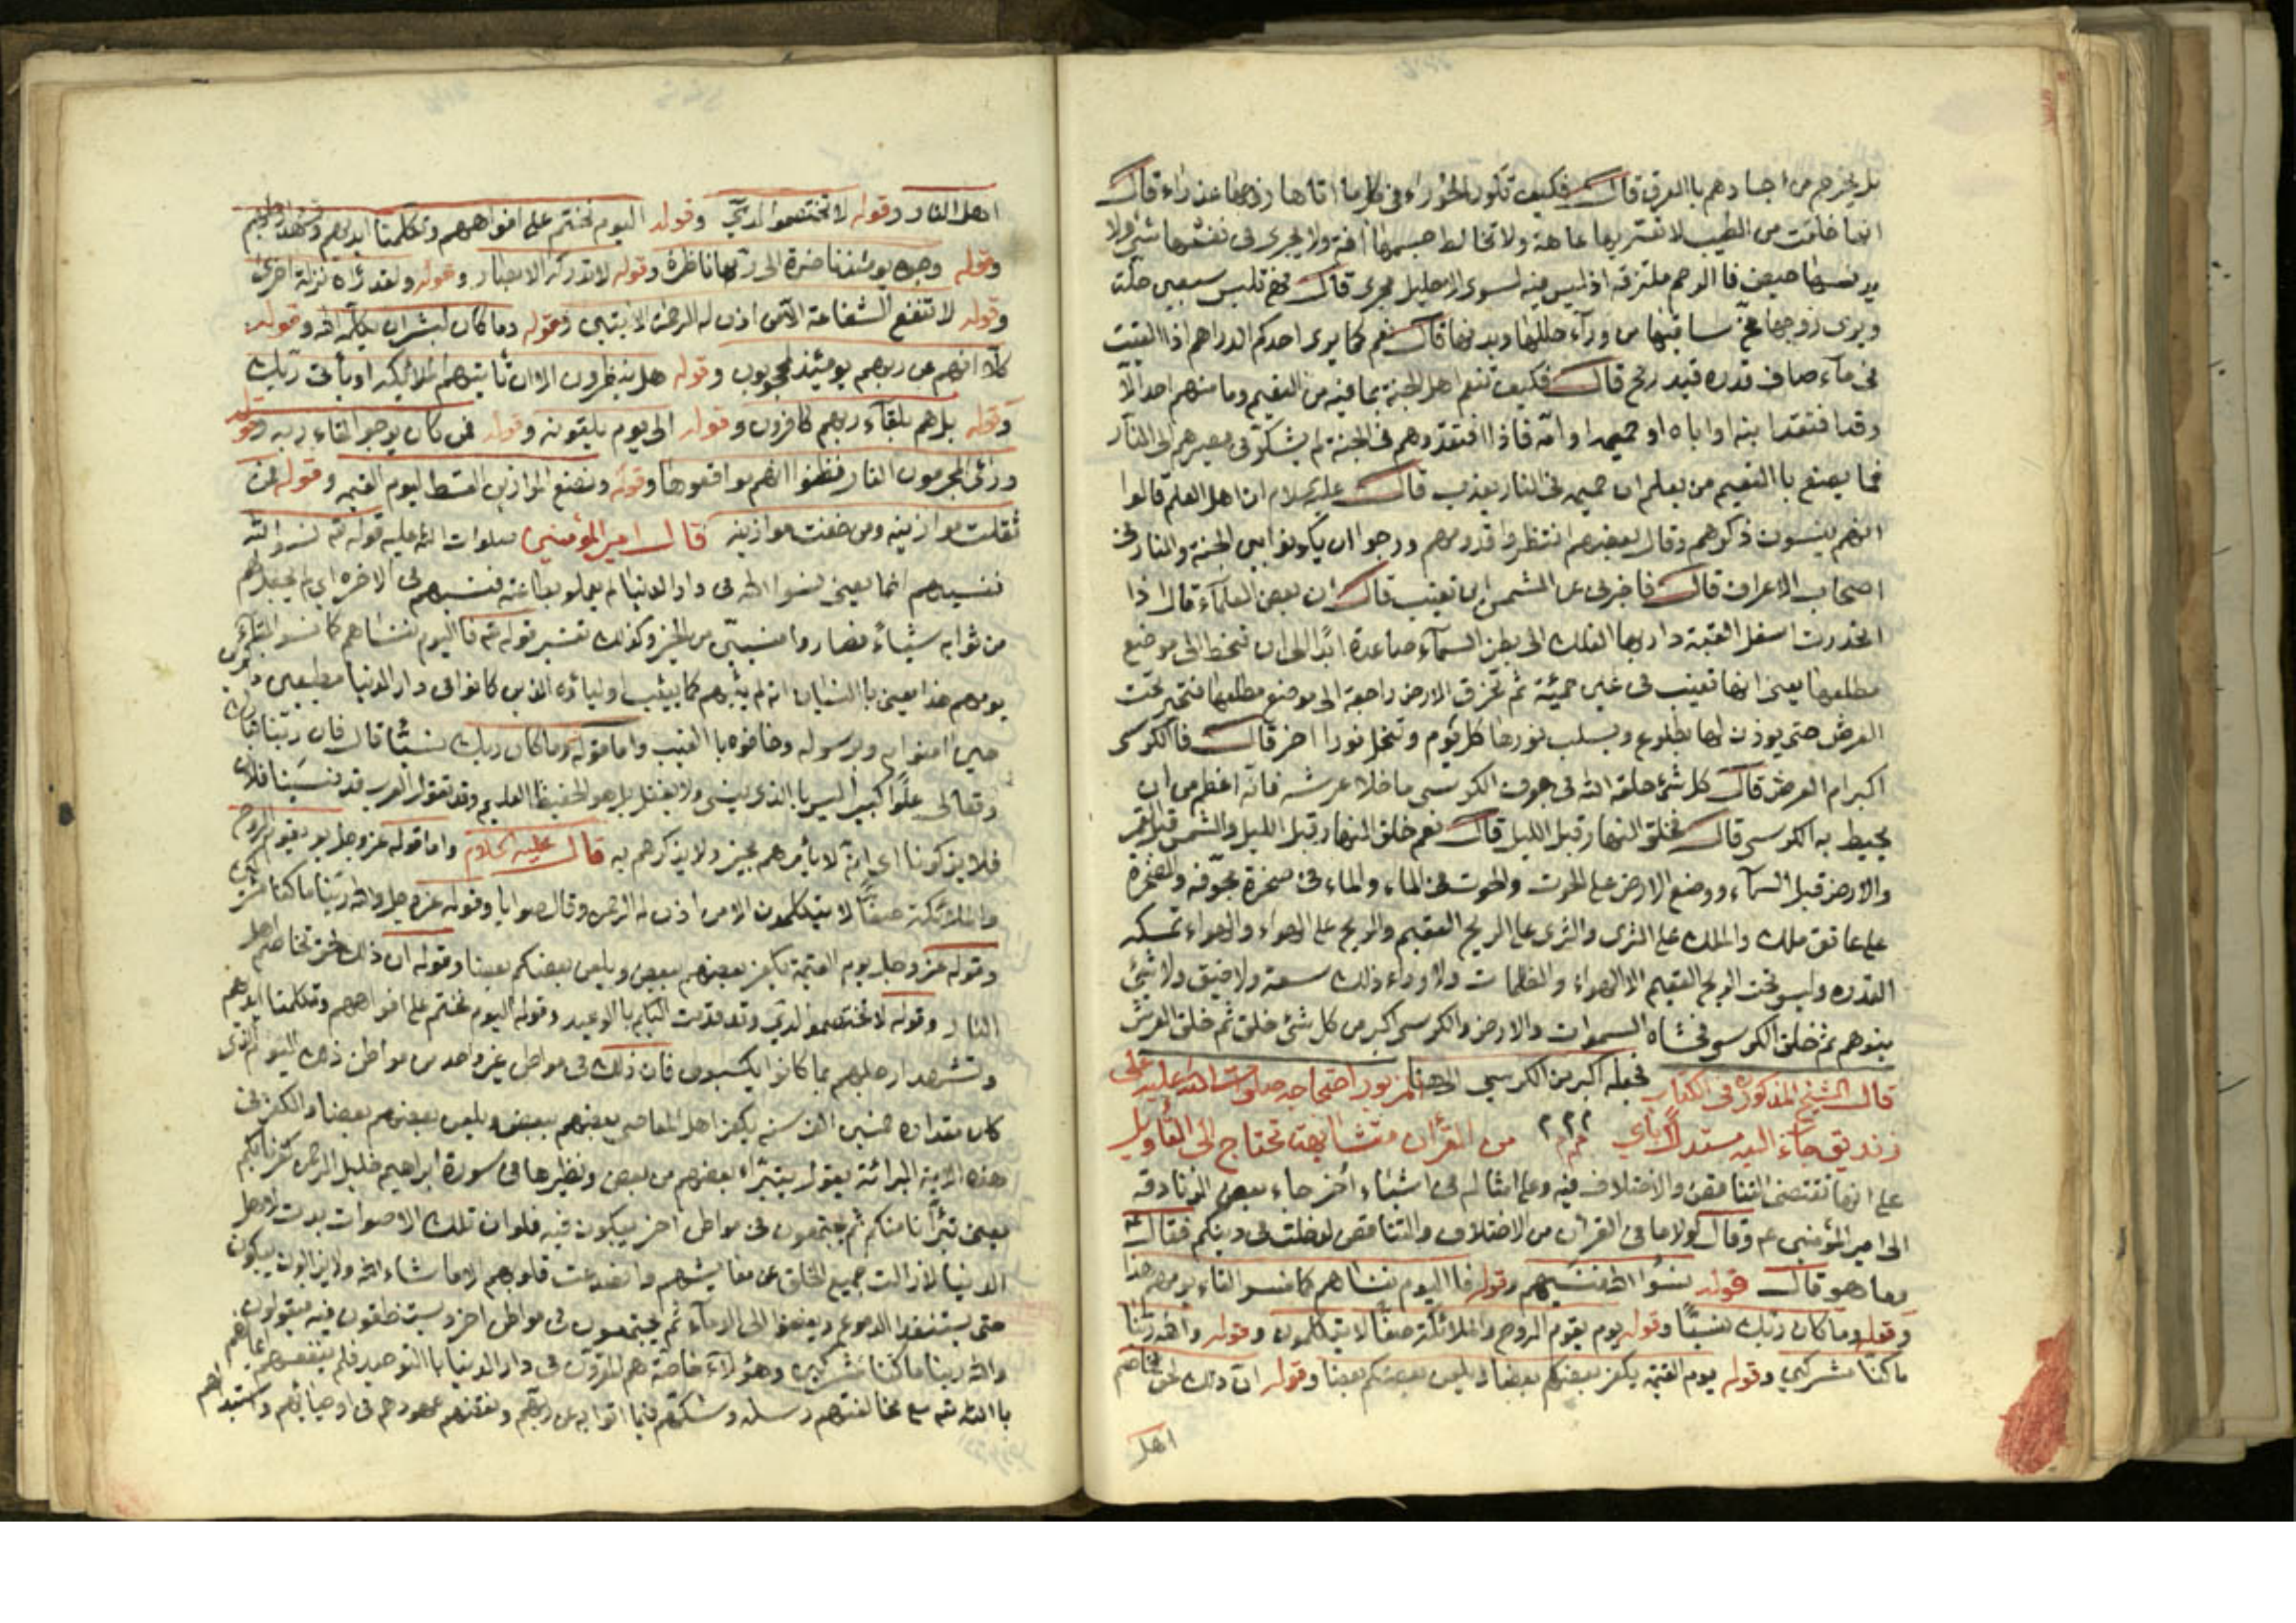 بل يخرج من اجسادهم بالعرق قال فكيف تكون الحوراء في كل ما اتاها زوجها عذراء قال
انها خلقت من الطيب لا تعتريها عاهة ولا تخالط جسمها آفة ولا يجري في ثقبها شئ ولا
يدنسها حيض فالرحم ملتزقة اذ ليس فيه لسوى الاحليل مجرى قال فهي تلبس سبعين حلة
ويرى زوجها مخ ساقيها من ورآء حللها وبدنها قال نعم كما يرى احدكم الدراهم اذا القيت
في مآء صاف قدره قيد رمح قال فكيف تنعم اهل الجنة بما فيه من النعيم وما منهم احد الا
وقد افتقد ابنه او اباه او حميمه او امه فاذا افتقدوهم في الجنة لم يشكوا في مصيرهم الى النار
فما يصنع بالنعيم من يعلم ان حميمه في النار يعذب قال عليه السلام ان اهل العلم قالوا
انهم ينسون ذكرهم وقال بعضهم انتظروا قدومهم ورجوا ان يكونوا بين الجنة والنار في
اصحاب الاعراف قال فاخبرني عن الشمس اين تغيب قال ان بعض العلمآء قال اذا
انحدرت اسفل القبة دار بها الفلك الى بطن السمآء صاعدة ابدا الى ان تنحط الى موضع
مطلعها يعني انها تغيب في عين حمئة ثم تخرق الارض راجعة الى موضع مطلعها فتحير تحت
العرش حتى يوذن لها بالطلوع ويسلب نورها كل يوم وتتجلل نورا اخر قال فالكرسي
اكبر ام العرش قال كل شئ خلقه الله في جوف الكرسي ما خلا عرشه فانه اعظم من ان
يحيط به الكرسي قال فخلق النهار قبل الليل قال نعم خلق النهار قبل الليل والشمس قبل القمر
والارض قبل السمآء ووضع الارض على الحوت والحوت في الماء والماء في صخرة مجوفة والصخرة
على عاتق ملك والملك على الثرى والثرى على الريح العقيم والريح على الهواء والهواء تمسكه
القدره وليس تحت الريح العقيم الا الهواء والظلمات ولا وراء ذلك سعة ولا ضيق ولا شئ
يتوهم ثم خلق الكرسي فحشاه السموات والارض والكرسي اكبر من كل شئ خلق ثم خلق العرش
فجعله اكبر من الكرسي
قال الشيخ المذكور في الكتاب المزبور احتجاجه صلوات الله عليه على
زنديق جآء اليه مستدلا بآي من القرآن متشابهة تحتاج الى التأويل
على انها تقتضى التناقض والاختلاف فيه وعلى امثاله في اشياء أخر جاء بعض الزنادقه
الى امير المؤمنين ع وقال لولا ما في القرآن من الاختلاف والتناقض لدخلت في دينكم فقال ع
وما هو قال قوله نسوا الله فنسيهم وقوله فاليوم ننساهم كما نسوا لقاء يومهم هذا
وقوله وما كان ربك نسيا وقوله يوم يقوم الروح والملائكة صفا لا يتكلمون وقوله والله ربنا
ما كنا مشركين وقوله يوم القيمة يكفر بعضكم بعضا ويلعن بعضكم بعضا وقوله ان ذلك لحق تخاصم
اهل
اهل النار وقوله لا تختصموا لدي وقوله اليوم نختم على افواههم وتكلمنا ايديهم وتشهد ارجلهم
وقوله وجوه يومئذ ناضرة الى ربها ناظرة وقوله لا تدركه الابصار وقوله ولقد رآه نزلة اخرى
وقوله لا تنفع الشفاعة الا من اذن له الرحمن الايتين وقوله وما كان لبشر ان يكلمه الله وقوله
كلا انهم عن ربهم يومئذ لمحجوبون وقوله هل ينظرون الا ان تأتيهم الملائكة او يأتي ربك
وقوله بل هم بلقآء ربهم كافرون وقوله الى يوم يلقونه وقوله فمن كان يرجو لقاء ربه وقوله
ورائ المجرمون النار فظنوا انهم مواقعوها وقوله ونضع الموازين القسط ليوم القيمه وقوله فمن
ثقلت موازينه ومن خفت موازينه قال امير المؤمنين صلوات الله عليه قوله تع نسوا الله
فنسيهم انما يعني نسوا الله في دار الدنيا لم يعملوا بطاعته فنسيهم في الاخره اي لم يجعل لهم
من ثوابه شيئا فصاروا منسيين من الخير وكذلك تفسير قوله تع فاليوم ننساهم كما نسوا لقاء
يومهم هذا يعني بالنسيان انه لم يثبهم كما يثيب اولياؤه الذين كانوا في دار الدنيا مطيعين
حين امنوا به وبرسوله وخافوه بالغيب واما قوله وما كان ربك نسيا قال فان ربنا تبارك
وتعالى علوا كبيرا ليس بالذي ينسى ولا يغفل بل هو الحفيظ العليم وقد تقول العرب قد نسينا فلان
فلا يذكرنا اي انه لا يأمرهم بخير ولا يذكرهم به قال عليه السلام واما قوله عز وجل يوم يقوم الروح
والملائكة صفا لا يتكلمون الا من اذن له الرحمن وقال صوابا وقوله عز وجل والله ربنا ما كنا مشركين
وقوله عز وجل يوم القيمة يكفر بعضهم ببعض ويلعن بعضكم بعضا وقوله ان ذلك لحق تخاصم اهل
النار وقوله لا تختصموا لدي وقد قدمت اليكم بالوعيد وقوله اليوم نختم على افواههم وتكلمنا ايديهم
وتشهد ارجلهم بما كانوا يكسبون فان ذلك في مواطن غير واحد من مواطن ذلك اليوم الذي
كان مقداره خمسين الف سنه يكفر اهل المعاصي بعضهم ببعض ويلعن بعضهم بعضا والكفر في
هذه الاية البرائة يقول يتبرأ بعضهم من بعض ونظيرها في سورة ابراهيم خليل الرحمن كفرنا بكم
يعني تبرأنا منكم ثم يجتمعون في مواطن اخر يبكون فيه فلو ان تلك الاصوات بدت لاهل
الدنيا لازالت جميع الخلق عن معايشهم وانصدعت قلوبهم الا ما شاء الله ولا يزالون يبكون
حتى يستنفدوا الدموع ويفضوا الى الدمآء ثم يجتمعون في مواطن اخر ويستنطقون فيه فيقولون
والله ربنا ما كنا مشركين وهؤلآء خاصة هم المقرون في دار الدنيا بالتوحيد فلم ينفعهم ايمانهم
بالله تع مع مخالفتهم رسله وشكهم فيما اتوا به عن ربهم ونقضهم عهودهم في اوصيائهم واستبدالهم